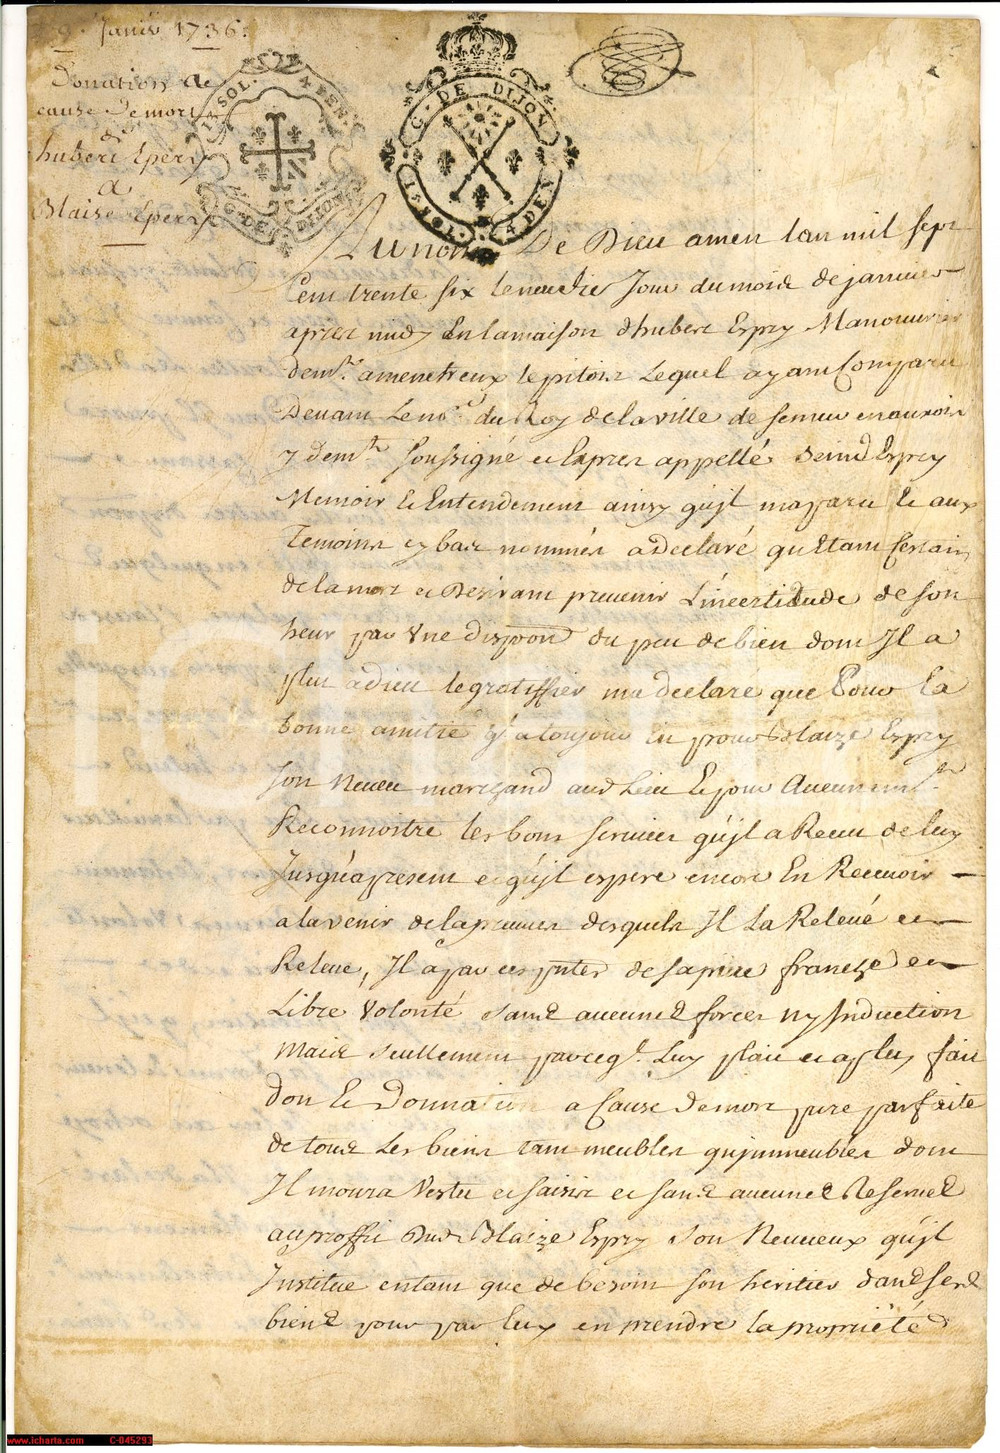 9. Janvr 1736.
Donation a
cause De mort
de
hubert Epery
a
Blaise Epery
G · DE DIJON
1 · SOL · 4 DEN
I · SOL · 4 DEN ·
G · DE · DIJON
Au nom De Dieu amen lan mil sept
Cent trente six le neufie Jour du mois de janvier
apres midy En la maison d'hubert Espry Manouvrier
demt. a menetreux le pitois Lequel ayant Comparu
Devant Le nore. du Roy de la ville de semeur en auxois
y demt soussigné et Expres appellé saind Espry
Memoir Et Entendement ainsy qu'jl m'a paru Et aux
Temoins cy bas nommés a declaré qu'Etant Certain
de la mort et Desirant prevenir L'incertidude de son
heur par Une dispoon du peu de bien dont Jl a
plu a dieu le gratiffier m'a declaré que Pour La
bonne amitié qu'jl a toujour Eu pour Blaize Espry
son Neveu marchand aud Lieu Et pour Aucunemt.
Reconnoitre les bons services qu'jl a Receu de luy
Jusqu'a present et qu'jl espere encore En Recevoir
a la venir de la preuves desquels Jl La Relevé et
Releve, Jl a par ces pntes de sa pure franche et
Libre Volonté sans aucunes forces ny Induction
Mais seullement parce q. Luy plait et a plu, fait
don Et Donnation a Cause De mort pure parfaite
de tous Les biens tant meubles qu'jmmeubles dont
Jl moura Vestu et saisis et sans aucunes Reserves
au proffit Dud. Blaize Espry son Neuveux qu'jl
Institue entant que de besoin son heritier dans ses
biens pour par luy en prendre la proprieté
www.icharta.com C-045293